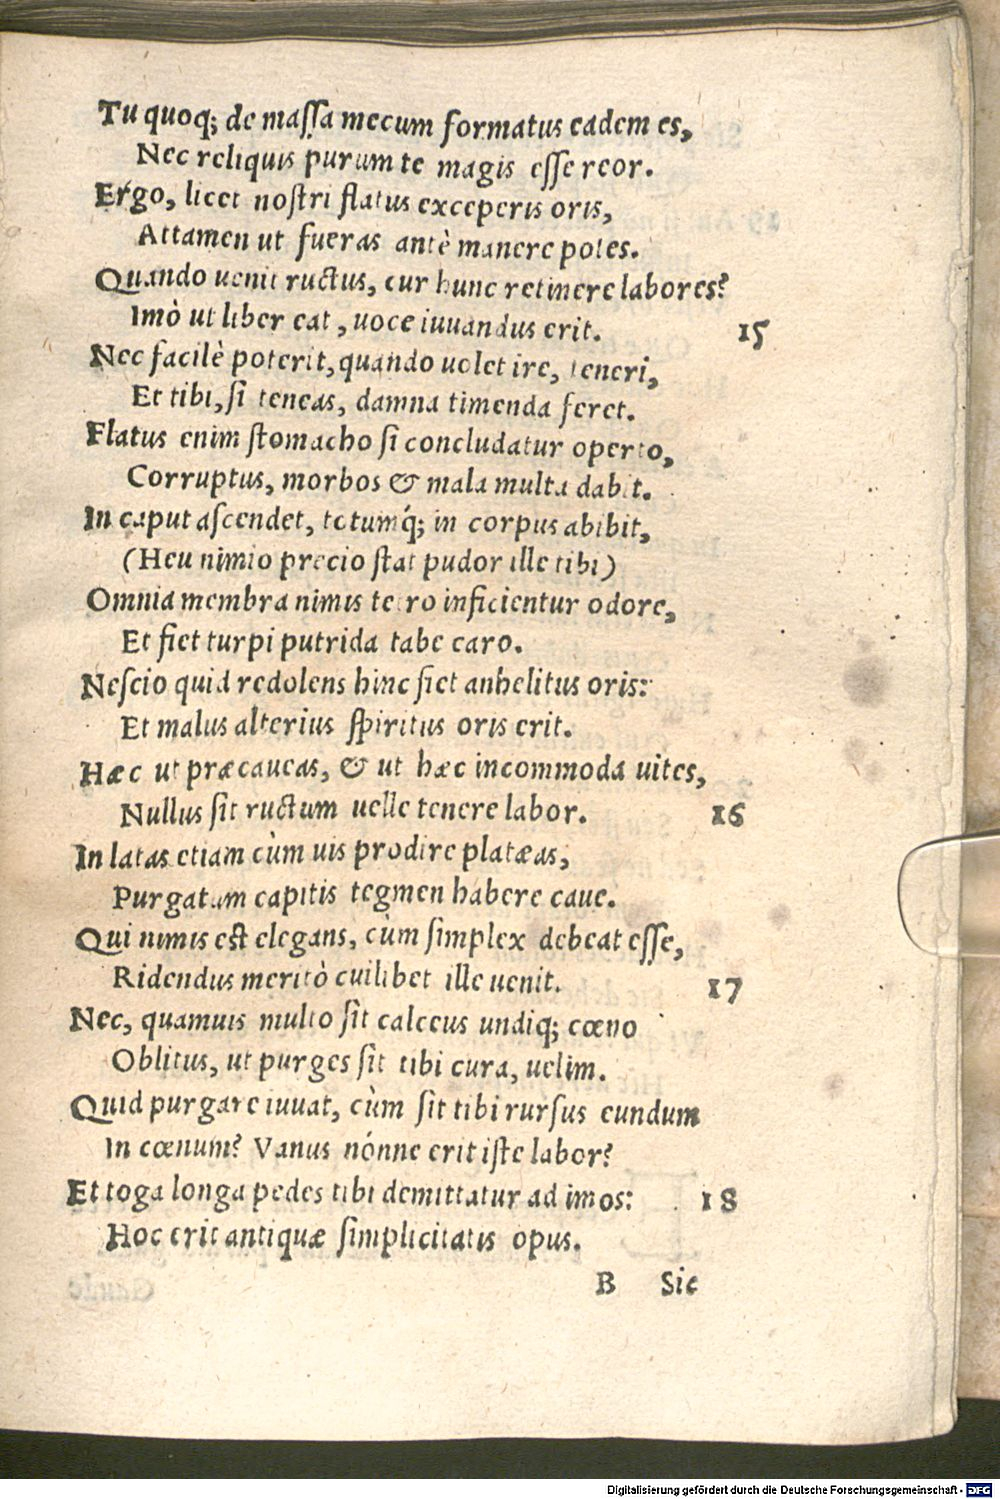 Tu quoq; de massa mecum formatus eadem es,
Nec reliquis purum te magis esse reor.
Ergo, licet nostri flatus exceperis oris,
Attamen ut fueras antè manere potes.
Quando uenit ructus, cur hunc retinere labores?
Imò ut liber eat, uoce iuuandus erit. 15
Nec facilè poterit, quando uolet ire, teneri,
Et tibi, si teneas, damna timenda feret.
Flatus enim stomacho si concludatur operto,
Corruptus, morbos & mala multa dabit.
In caput ascendet, totumq́; in corpus abibit,
(Heu nimio precio stat pudor ille tibi)
Omnia membra nimis tetro inficientur odore,
Et fiet turpi putrida tabe caro.
Nescio quid redolens hinc fiet anhelitus oris:
Et malus alterius spiritus oris erit.
Hæc ut præcaueas, & ut hæc incommoda uites,
Nullus sit ructum uelle tenere labor. 16
In latas etiam cùm uis prodire platæas,
Purgatum capitis tegmen habere caue.
Qui nimis est elegans, cùm simplex debeat esse,
Ridendus meritò cuilibet ille uenit. 17
Nec, quamuis multo sit calceus undiq; cœno
Oblitus, ut purges sit tibi cura, uelim.
Quid purgare iuuat, cùm sit tibi rursus eundum
In cœnum? Vanus nónne erit iste labor?
Et toga longa pedes tibi demittatur ad imos: 18
Hoc erit antiquæ simplicitatis opus.
B Sic
Digitalisierung gefördert durch die Deutsche Forschungsgemeinschaft - DFG